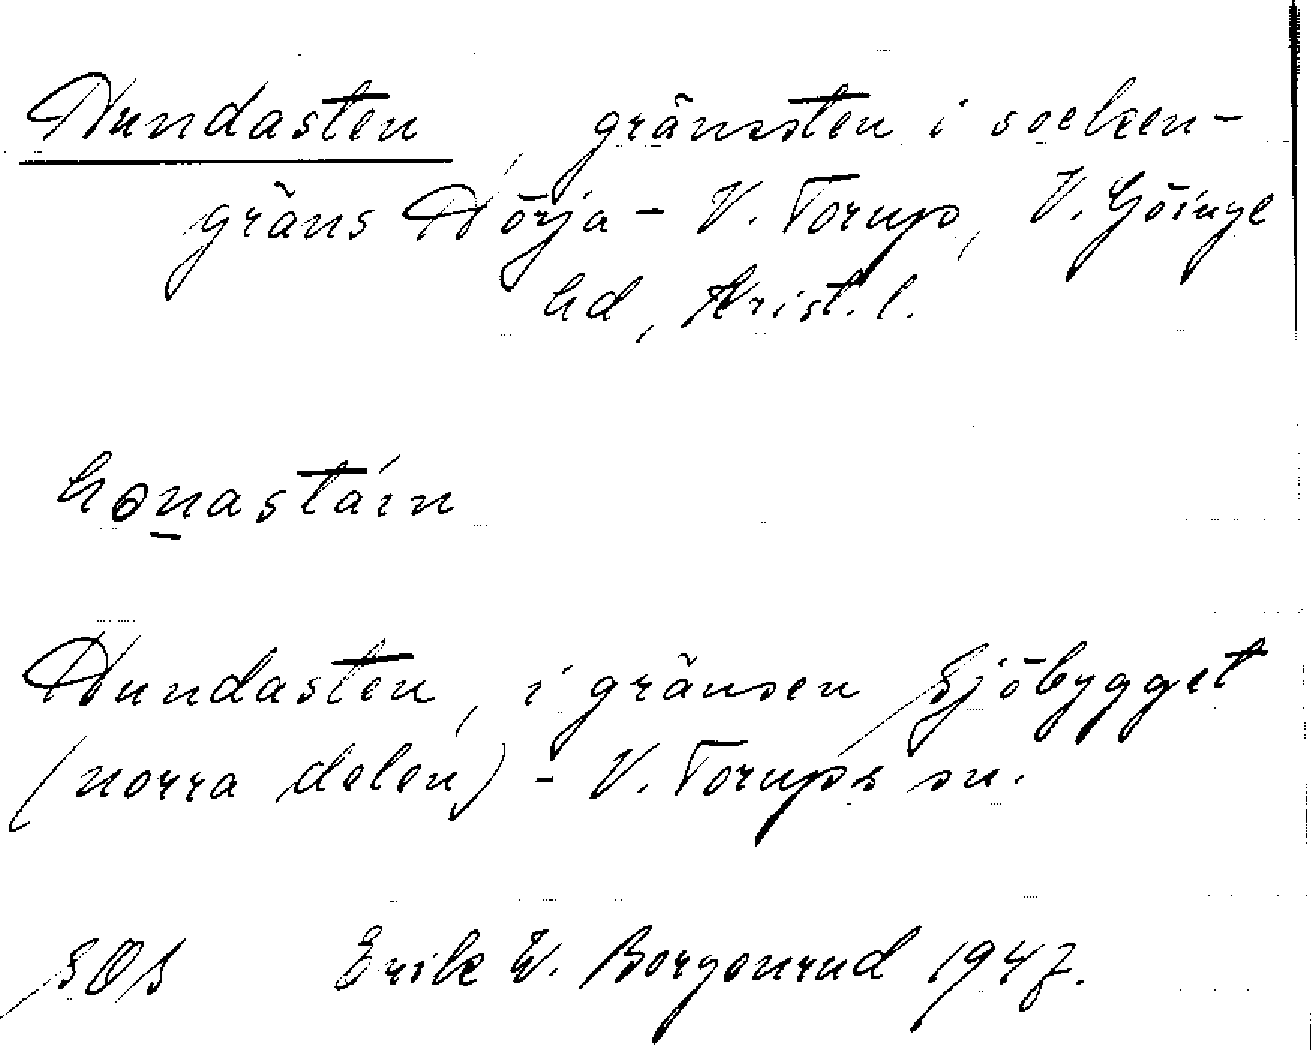 Hundasten, gränssten i socken-
gräns Hörja - V. Torup, V. Göinge
hd, Krist. l.
honastáin
Hundasten, i gränsen Sjöbygget
(norra delen) - V. Torups sn.
SOS Erik W. Borgenrud 1947.